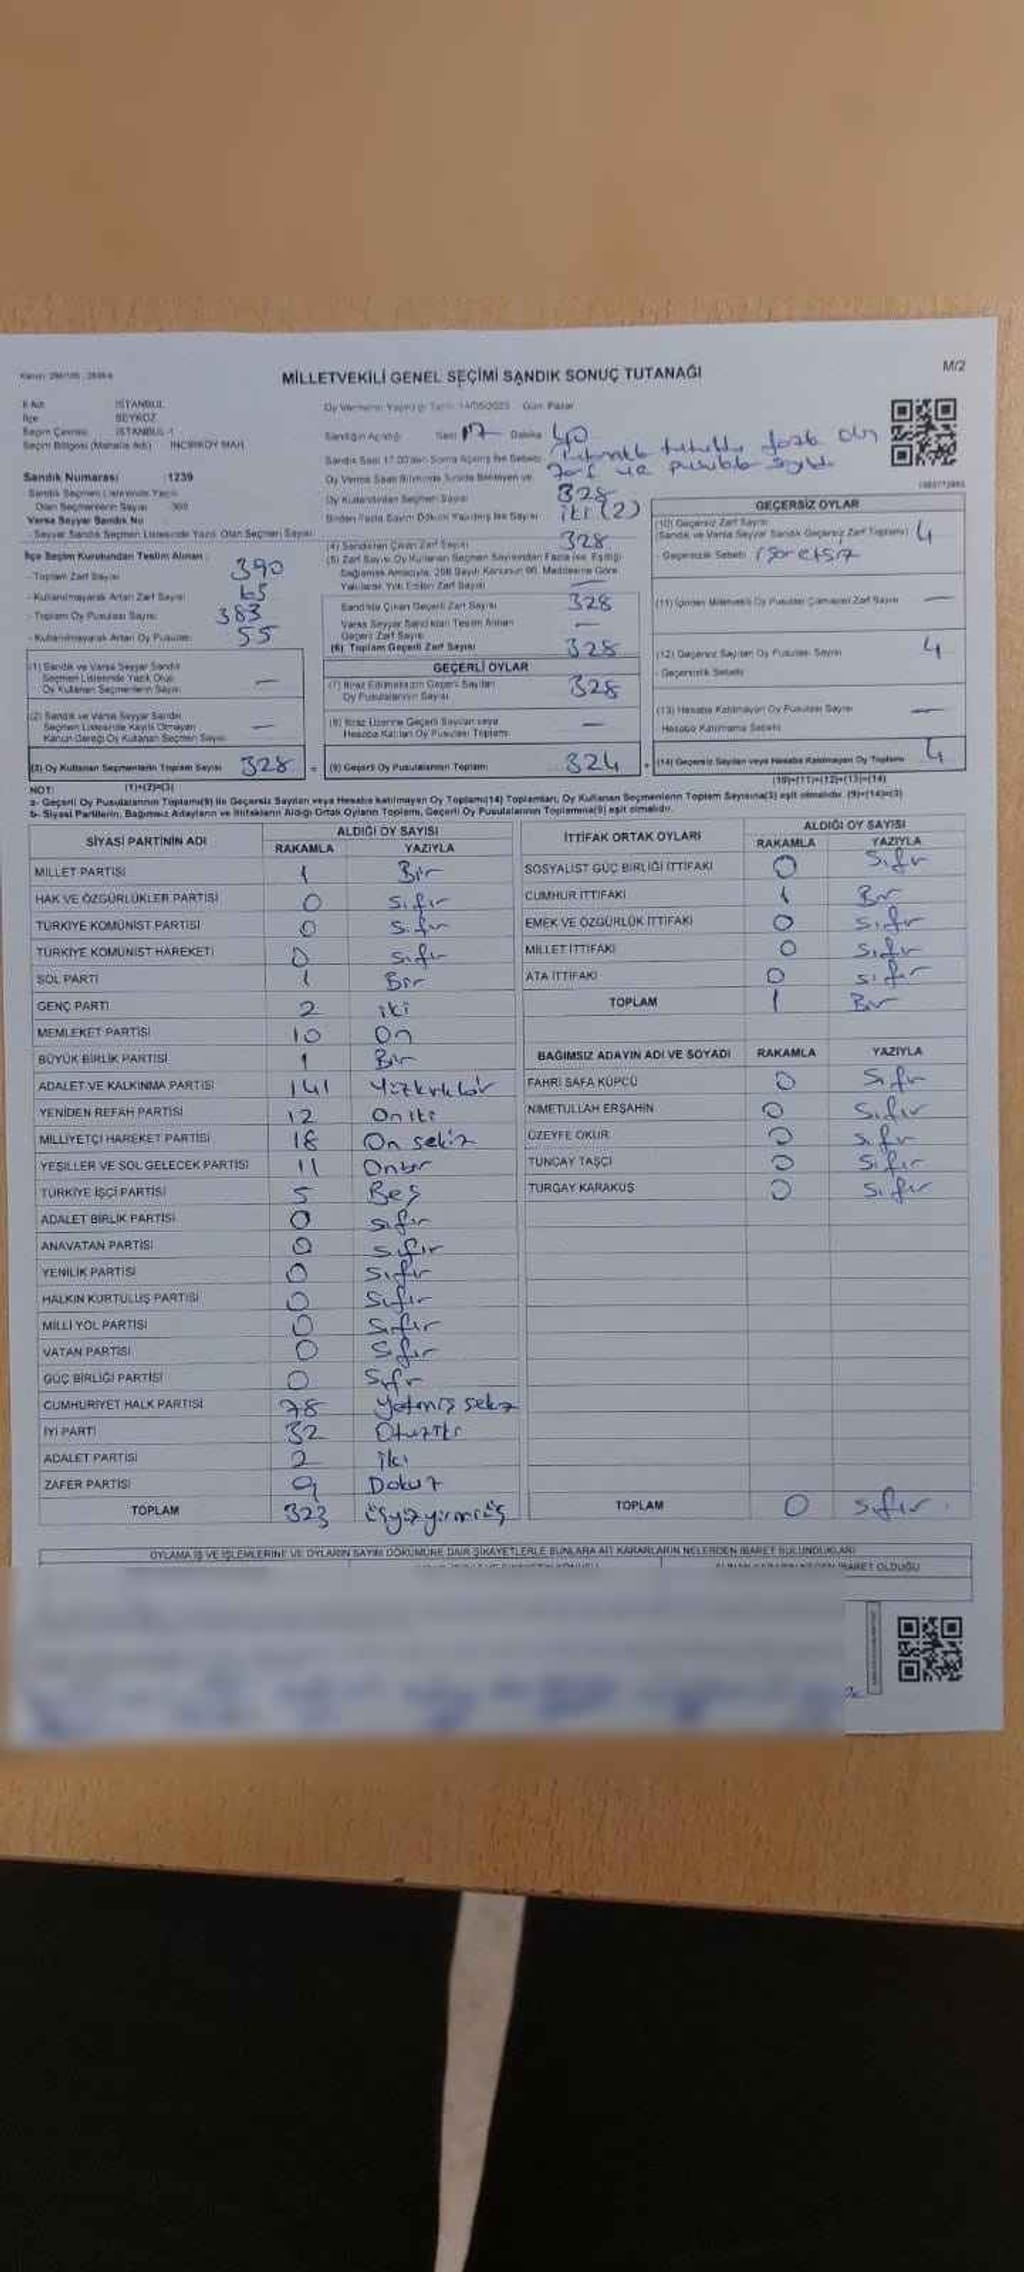 M/2
MİLLETVEKİLİ GENEL SEÇİMİ SANDIK SONUÇ TUTANAĞI
İli Adı İSTANBUL
İlçe BEYKOZ
Seçim Çevresi İSTANBUL-1
Seçim Bölgesi (Mahalle Adı) İNCİRKÖY MAH.
Oy Vermenin Yapıldığı Tarih: 14/05/2023 Gün: Pazar
Sandığın Açıldığı Saat 17 Dakika 40
Sandık Saat 17.00'dan Sonra Açılmış İse Sebebi: tutuldu fazla olan
zarf ve pusula sayıldı
Sandık Numarası : 1239
Sandık Seçmen Listesinde Yazılı
Olan Seçmenlerin Sayısı
Varsa Seyyar Sandık No
Seyyar Sandık Seçmen Listesinde Yazılı Olan Seçmen Sayısı
Oy Kullanılan Seçmen Sayısı 328
Birden Fazla Sayım Döküm Yapılmış İse Sayısı iki (2)
İlçe Seçim Kurulundan Teslim Alınan
- Toplam Zarf Sayısı 390
- Kullanılmayarak Artan Zarf Sayısı 65
- Toplam Oy Pusulası Sayısı 383
- Kullanılmayarak Artan Oy Pusulası 55
(1) Sandık ve Varsa Seyyar Sandık
Seçmen Listesinde Yazılı Olup
Oy Kullanan Seçmenlerin Sayısı —
(2) Sandık ve Varsa Seyyar Sandık
Seçmen Listesinde Kayıtlı Olmayan
Kanun Gereği Oy Kullanan Seçmen Sayısı —
(3) Oy Kullanan Seçmenlerin Toplam Sayısı 328
(1)+(2)=(3)
(4) Sandıktan Çıkan Zarf Sayısı 328
(5) Zarf Sayısı Oy Kullanan Seçmen Sayısından Fazla ise, Eşitliği
Sağlamak Amacıyla, 298 Sayılı Kanunun 98. Maddesine Göre
Yakılarak Yok Edilen Zarf Sayısı —
Sandıkta Çıkan Geçerli Zarf Sayısı 328
Varsa Seyyar Sandıktan Teslim Alınan
Geçerli Zarf Sayısı —
(6) Toplam Geçerli Zarf Sayısı 328
GEÇERLİ OYLAR
(7) İtiraz Edilmeksizin Geçerli Sayılan
Oy Pusulalarının Sayısı 328
(8) İtiraz Üzerine Geçerli Sayılan veya
Hesaba Katılan Oy Pusulası Toplamı —
(9) Geçerli Oy Pusulalarının Toplamı 324
GEÇERSİZ OYLAR
(10) Geçersiz Zarf Sayısı
(Sandık ve Varsa Seyyar Sandık Geçersiz Zarf Toplamı) 4
- Geçersizlik Sebebi
(11) İçinden Milletvekili Oy Pusulası Çıkmayan Zarf Sayısı —
(12) Geçersiz Sayılan Oy Pusulası Sayısı 4
- Geçersizlik Sebebi
(13) Hesaba Katılmayan Oy Pusulası Sayısı —
Hesaba Katılmama Sebebi
(14) Geçersiz Sayılan veya Hesaba Katılmayan Oy Toplamı 4
(10)+(11)+(12)+(13)=(14)
NOT:
a- Geçerli Oy Pusulalarının Toplamı(9) ile Geçersiz Sayılan veya Hesaba katılmayan Oy Toplamı(14) Toplamları, Oy Kullanan Seçmenlerin Toplam Sayısına(3) eşit olmalıdır. (9)+(14)=(3)
b- Siyasi Partilerin, Bağımsız Adayların ve İttifakların Aldığı Ortak Oyların Toplamı, Geçerli Oy Pusulalarının Toplamına(9) eşit olmalıdır.
SİYASİ PARTİNİN ADI ALDIĞI OY SAYISI
RAKAMLA YAZIYLA
MİLLET PARTİSİ 1 Bir
HAK VE ÖZGÜRLÜKLER PARTİSİ 0 sıfır
TÜRKİYE KOMÜNİST PARTİSİ 0 sıfır
TÜRKİYE KOMÜNİST HAREKETİ 0 sıfır
SOL PARTİ 1 Bir
GENÇ PARTİ 2 iki
MEMLEKET PARTİSİ 10 On
BÜYÜK BİRLİK PARTİSİ 1 Bir
ADALET VE KALKINMA PARTİSİ 141 Yüzkırkbir
YENİDEN REFAH PARTİSİ 12 Oniki
MİLLİYETÇİ HAREKET PARTİSİ 18 On sekiz
YEŞİLLER VE SOL GELECEK PARTİSİ 11 Onbir
TÜRKİYE İŞÇİ PARTİSİ 5 Beş
ADALET BİRLİK PARTİSİ 0 sıfır
ANAVATAN PARTİSİ 0 sıfır
YENİLİK PARTİSİ 0 sıfır
HALKIN KURTULUŞ PARTİSİ 0 sıfır
MİLLİ YOL PARTİSİ 0 sıfır
VATAN PARTİSİ 0 sıfır
GÜÇ BİRLİĞİ PARTİSİ 0 Sıfır
CUMHURİYET HALK PARTİSİ 78 yetmiş sekiz
İYİ PARTİ 32 Otuziki
ADALET PARTİSİ 2 iki
ZAFER PARTİSİ 9 Dokuz
TOPLAM 323 üçyüzyirmiüç
İTTİFAK ORTAK OYLARI ALDIĞI OY SAYISI
RAKAMLA YAZIYLA
SOSYALİST GÜÇ BİRLİĞİ İTTİFAKI 0 Sıfır
CUMHUR İTTİFAKI 1 Bir
EMEK VE ÖZGÜRLÜK İTTİFAKI 0 sıfır
MİLLET İTTİFAKI 0 sıfır
ATA İTTİFAKI 0 sıfır
TOPLAM 1 Bir
BAĞIMSIZ ADAYIN ADI VE SOYADI RAKAMLA YAZIYLA
FAHRİ SAFA KÜPCÜ 0 Sıfır
NİMETULLAH ERŞAHİN 0 Sıfır
ÜZEYFE OKUR 0 sıfır
TUNCAY TAŞCI 0 Sıfır
TURGAY KARAKUŞ 0 sıfır
TOPLAM 0 sıfır
OYLAMA İŞ VE İŞLEMLERİNE VE OYLARIN SAYIM DÖKÜMÜNE DAİR ŞİKAYETLERLE BUNLARA AİT KARARLARIN NELERDEN İBARET BULUNDUKLARI